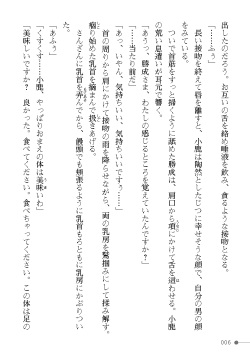 出したのだろう、お互いの舌を絡め唾液を飲み、貪るような接吻となる。
「……ぷう」
長い接吻を終えて唇を離すと、小鹿は陶然としたじつに幸せそうな顔で、自分の男の顔
をみている。
ついで首筋をすっと掃くように舐めた勝成は、肩口から項にかけて舌を這わせる。小鹿
の荒い息遣いが耳元で響く。
「あっっ、勝成さま、わたしの感じるところを覚えていてくれたんですか?」
「……当たり前だ」
「あっ、いやん、気持ちいい、気持ちいいですぅ……」
首の周りから胸にかけて接吻の雨を降らせながら、両の乳房を鷲掴みにして揉み解す。
痼り始めた乳首を摘まんで扱きあげる。
さんざんに乳首を弄んでから、饅頭でも頬張るように乳首もろともに乳房にかぶりつい
た。
「あふぅ」
「くすくす……小鹿、やっぱりおまえの体は美味いわ」
「美味しいですか? 良かった。食べてください。食べちゃってください。この体は足の
006